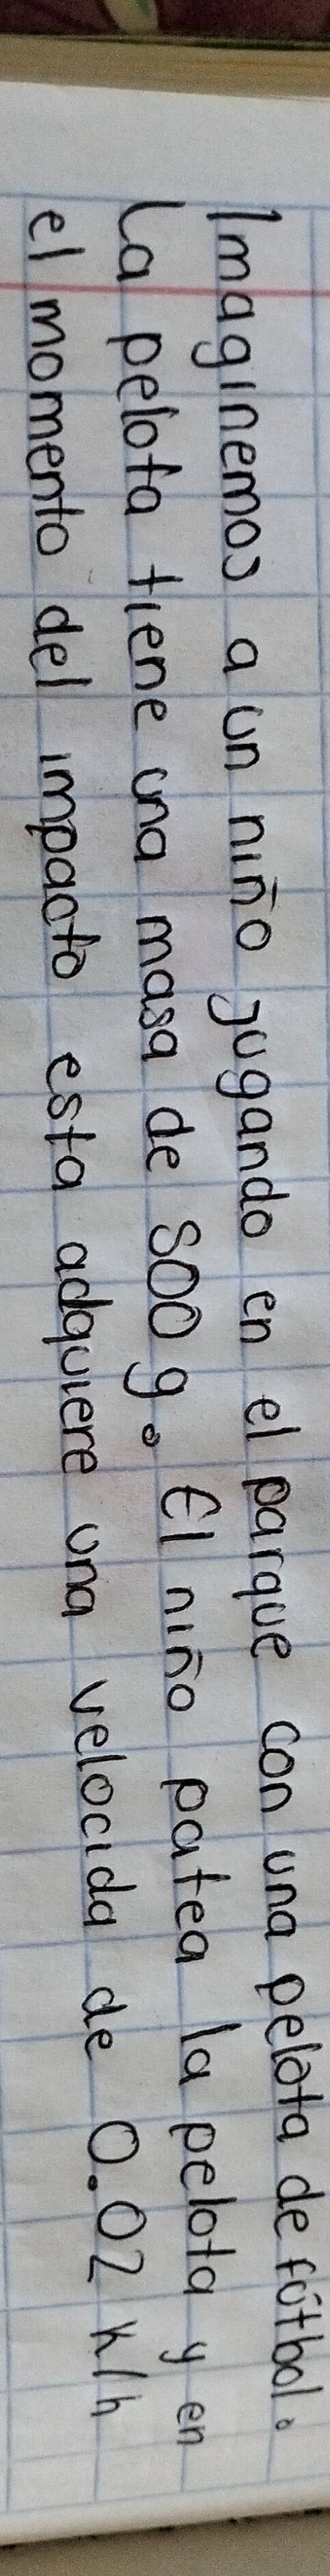 Imaginemos a un niño jugando en el parque con una pelota de fútbol.
La pelota tiene una masa de 500 g. El niño patea la pelota y en
el momento del impacto esta adquiere una velocida de 0.02 k/h